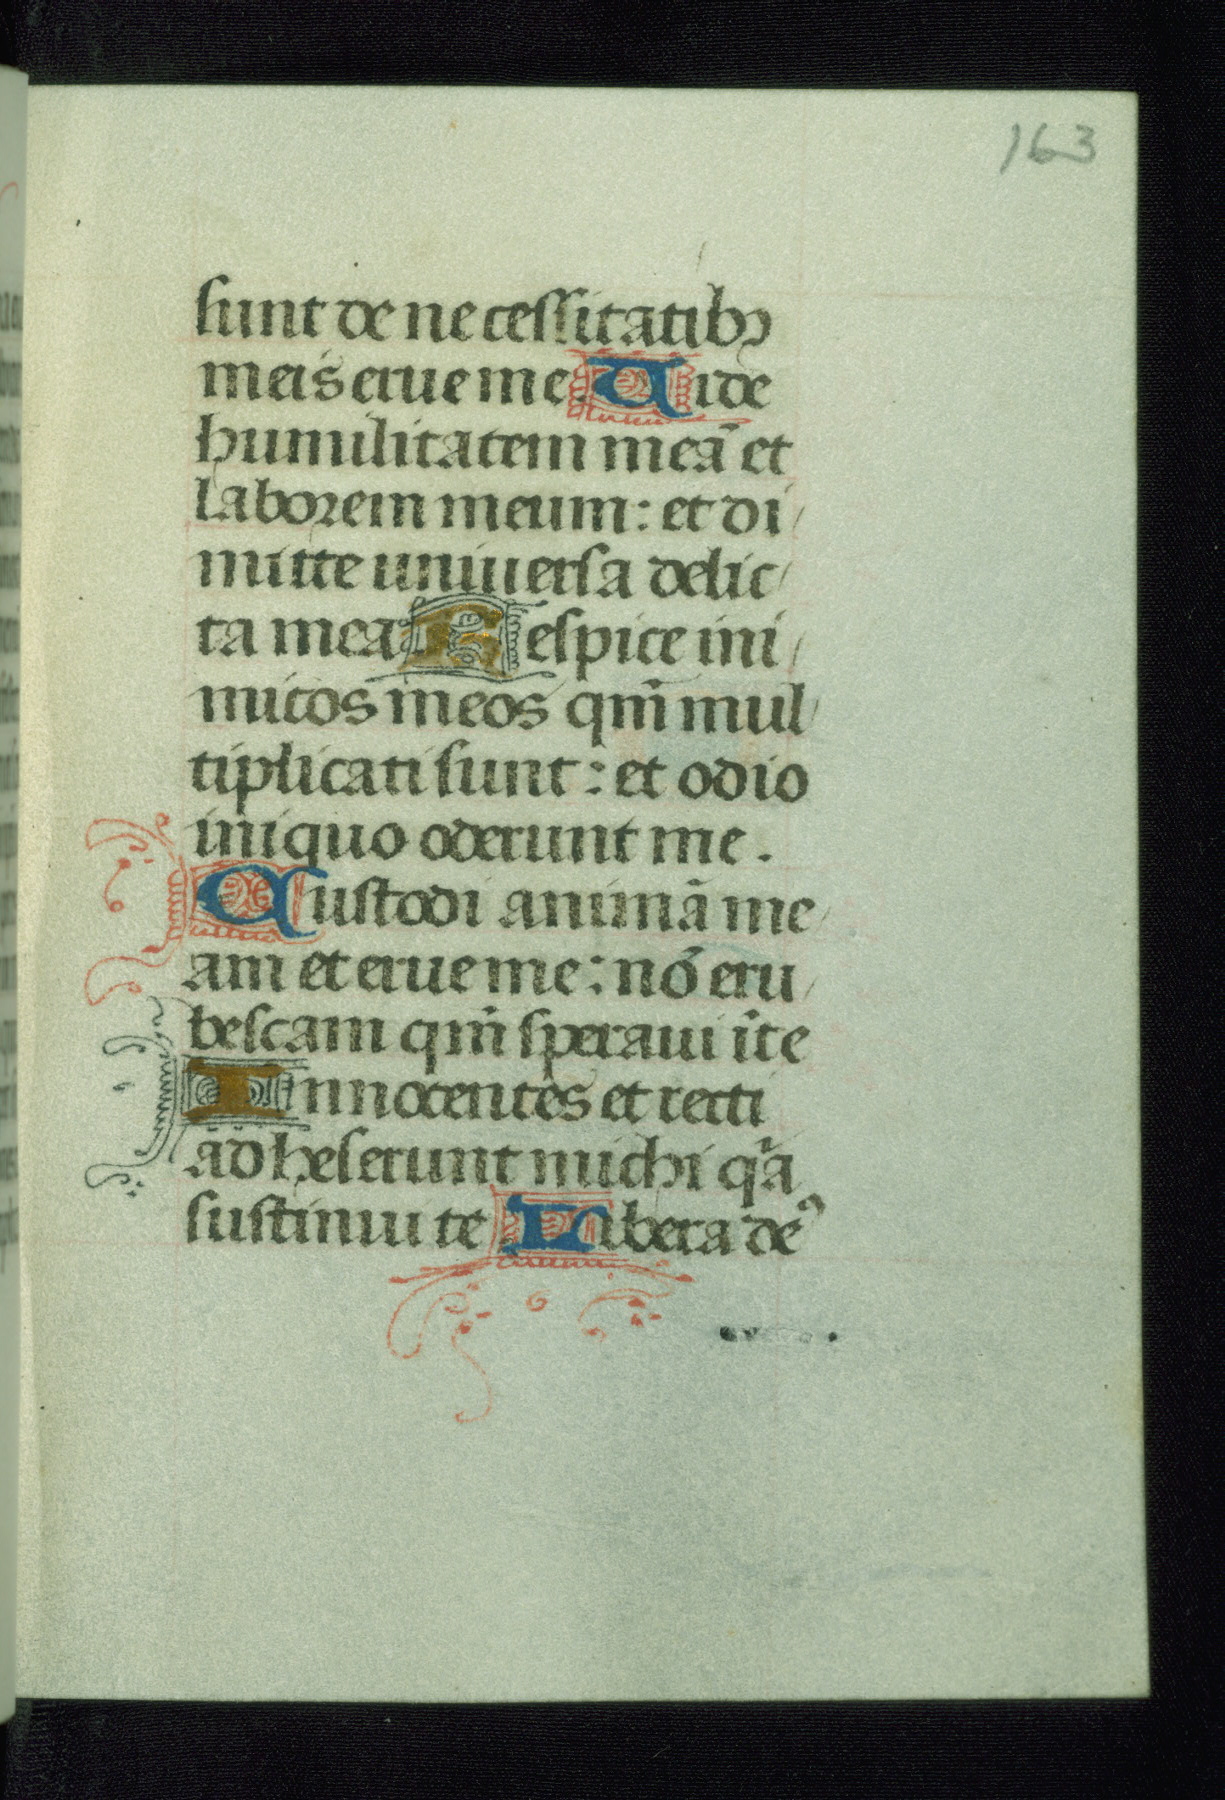 163
sunt de necessitatibꝫ
meis erue me. Vide
humilitatem meã et
laborem meum: et di
mitte uniuersa delic
ta mea Respice ini
micos meos qm̃ mul
tiplicati sunt: et odio
iniquo oderunt me.
Custodi animã me
am et erue me: nõ eru
bescam qm̃ speraui ĩ te
Innocentes et recti
adheserunt michi q̃a
sustinui te Libera deꝰ